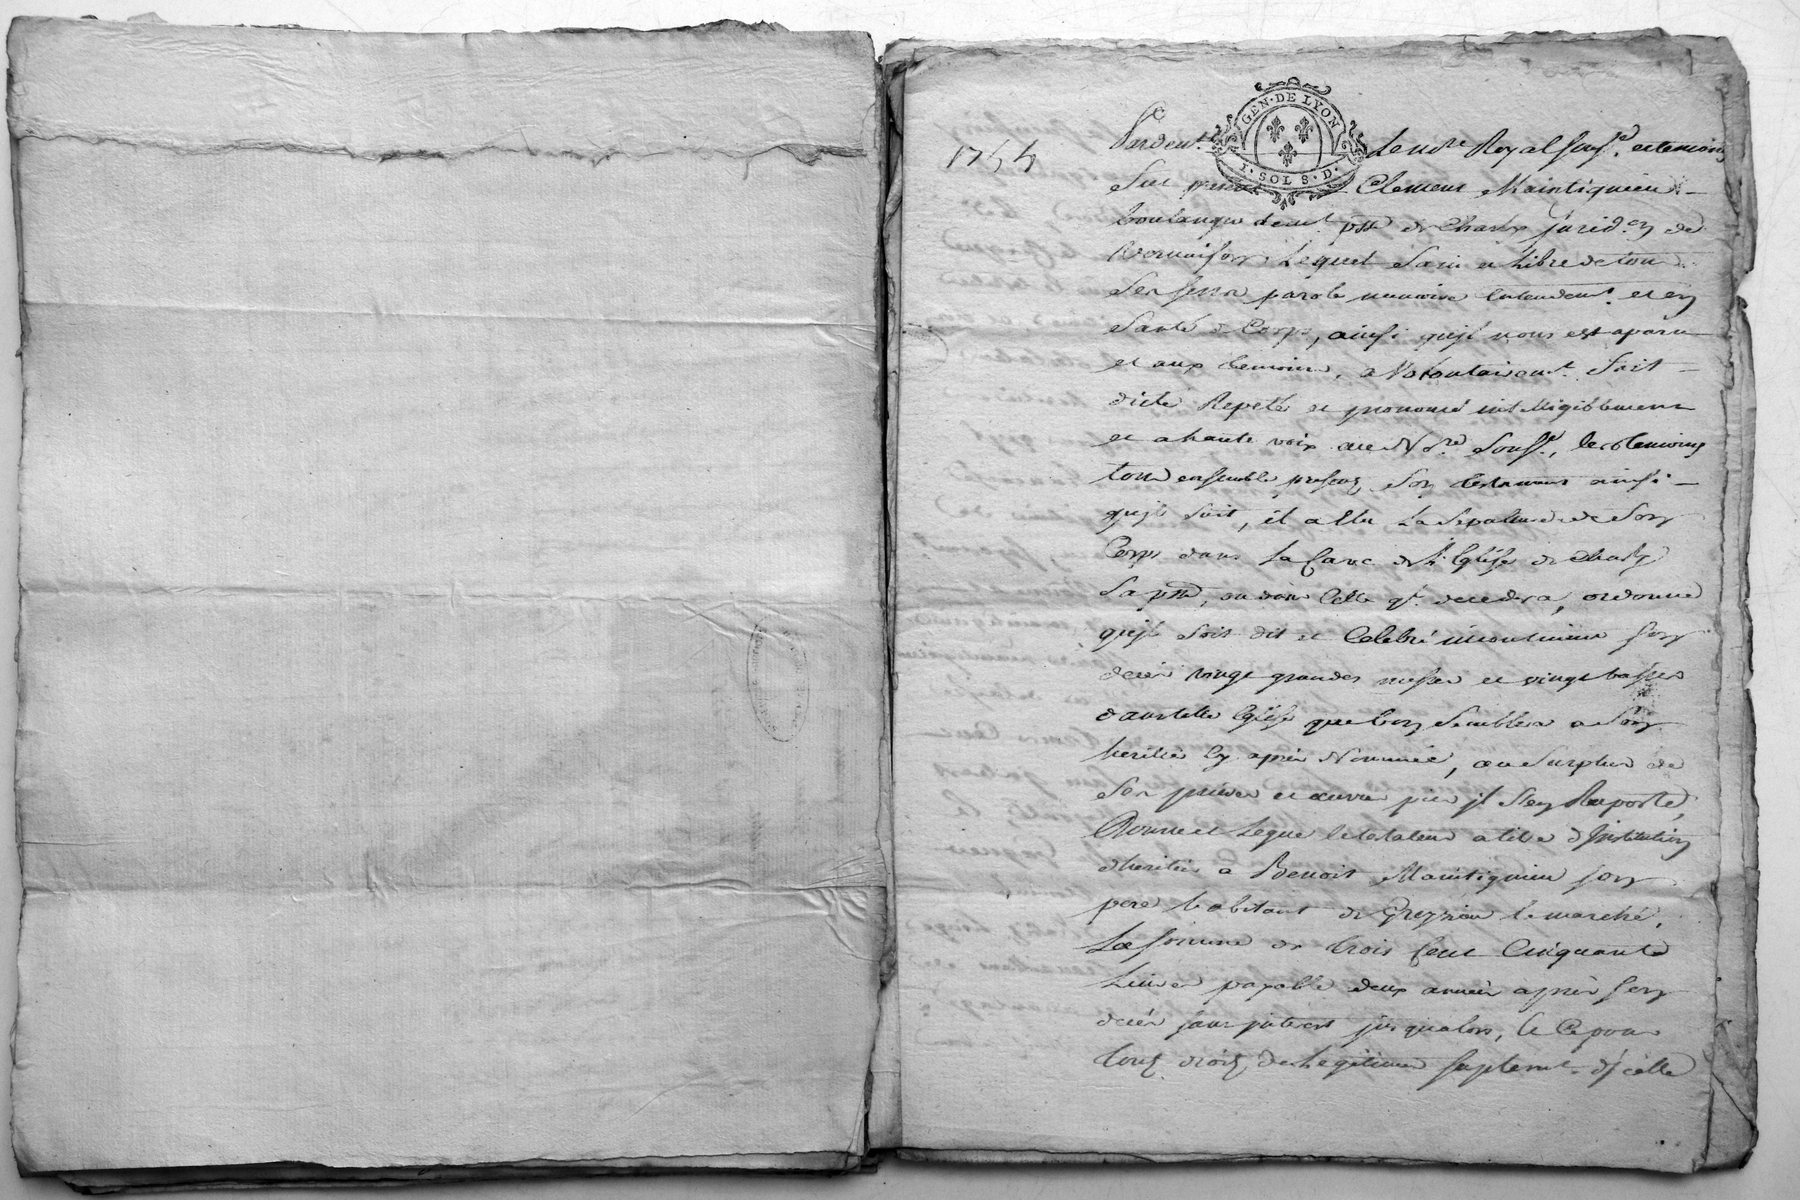 GEN · DE LYON
1 · SOL 8 · D ·
1754
Pardevt. Le nore Royal sousé. et temoins
fut present Clement Maintignieu
boulanger demt. psse de Charly jurid.on de
Lequel sain et libre de tous
ses sens parole memoire Entendemt. et en
santé de Corps, ainsi qu'jl nous est aparu
et aux temoins, a Volontairemt. fait
dicté Repeté et prononcé intelligiblement
et a haute voix au Nore. sousé., les temoins
tous ensemble presens son testament ainsi
qujl suit, il a Elu la sepulture de son
Corps dans la Cave de l'Eglise de Charly
sa psse, ou dans Celle qt. decedera, ordonne
qujl soit dit et Celebré incontinent son
decés vingt grandes messes et vingt basses
dans telle Eglise que bon semblera a son
heritier Cy aprés Nommée, au surplus de
ses prieres et œuvres pies jl s'en Raporte,
Donne et Legue le testateur a titre d'Institution
d'heritier a Benoit Maintignieu son
pere habitant de Grezieu le marché,
La somme de trois Cent Cinquante
Livres payable deux années aprés son
decés sans jnterest jusqualors, le Ce pour
tous droits de Legitime suplemt. d'jcelle